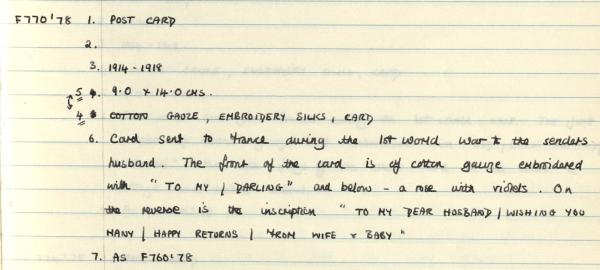 F770'78 1. POST CARD
2.
3. 1914-1918
5 4. 9.0 x 14.0 CMS.
4 5 COTTON GAUZE, EMBROIDERY SILKS, CARD
6. Card sent to France during the 1st World War to the senders
husband. The front of the card is of cotton gauze embroidered
with "TO MY / DARLING" and below - a rose with violets. On
the reverse is the inscription "TO MY DEAR HUSBAND / WISHING YOU
MANY / HAPPY RETURNS / FROM WIFE & BABY"
7. AS F760'78